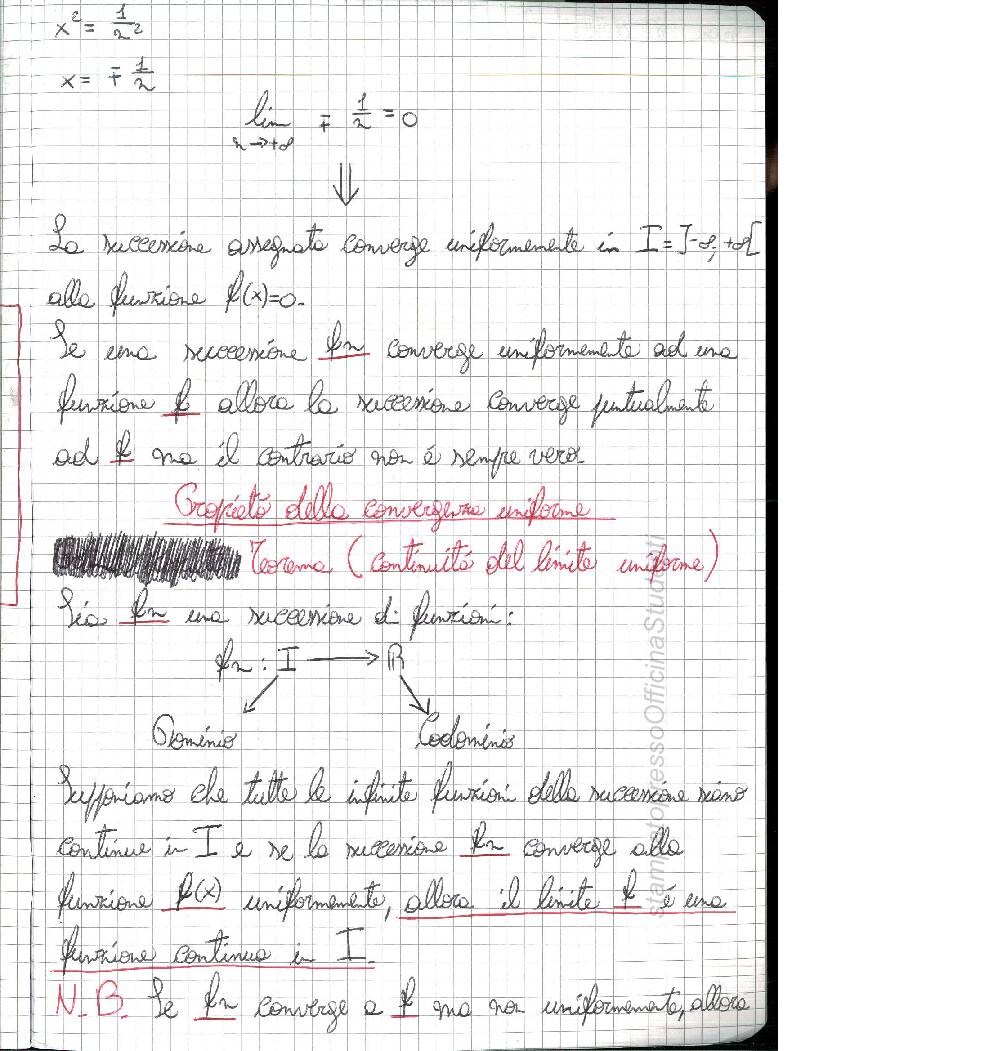 x² = 1/n²
x = ∓ 1/n
lim n→+∞ ∓ 1/n = 0
⇓
La successione assegnata converge uniformemente in I = ]-∞, +∞[
alla funzione f(x)=0.
Se una successione fn converge uniformemente ad una
funzione f allora la successione converge puntualmente
ad f ma il contrario non é sempre vero.
Propietà della convergenza uniforme
Teorema (continuità del limite uniforme)
Sia fn una successione di funzioni:
fn : I → ℝ
Dominio Codominio
Supponiamo che tutte le infinite funzioni della successione siano
continue in I e se la successione fn converge alla
funzione f(x) uniformemente, allora il limite f é una
funzione continua in I.
N.B. Se fn converge a f ma non uniformemente, allora
stampatopressoOfficinaStudenti